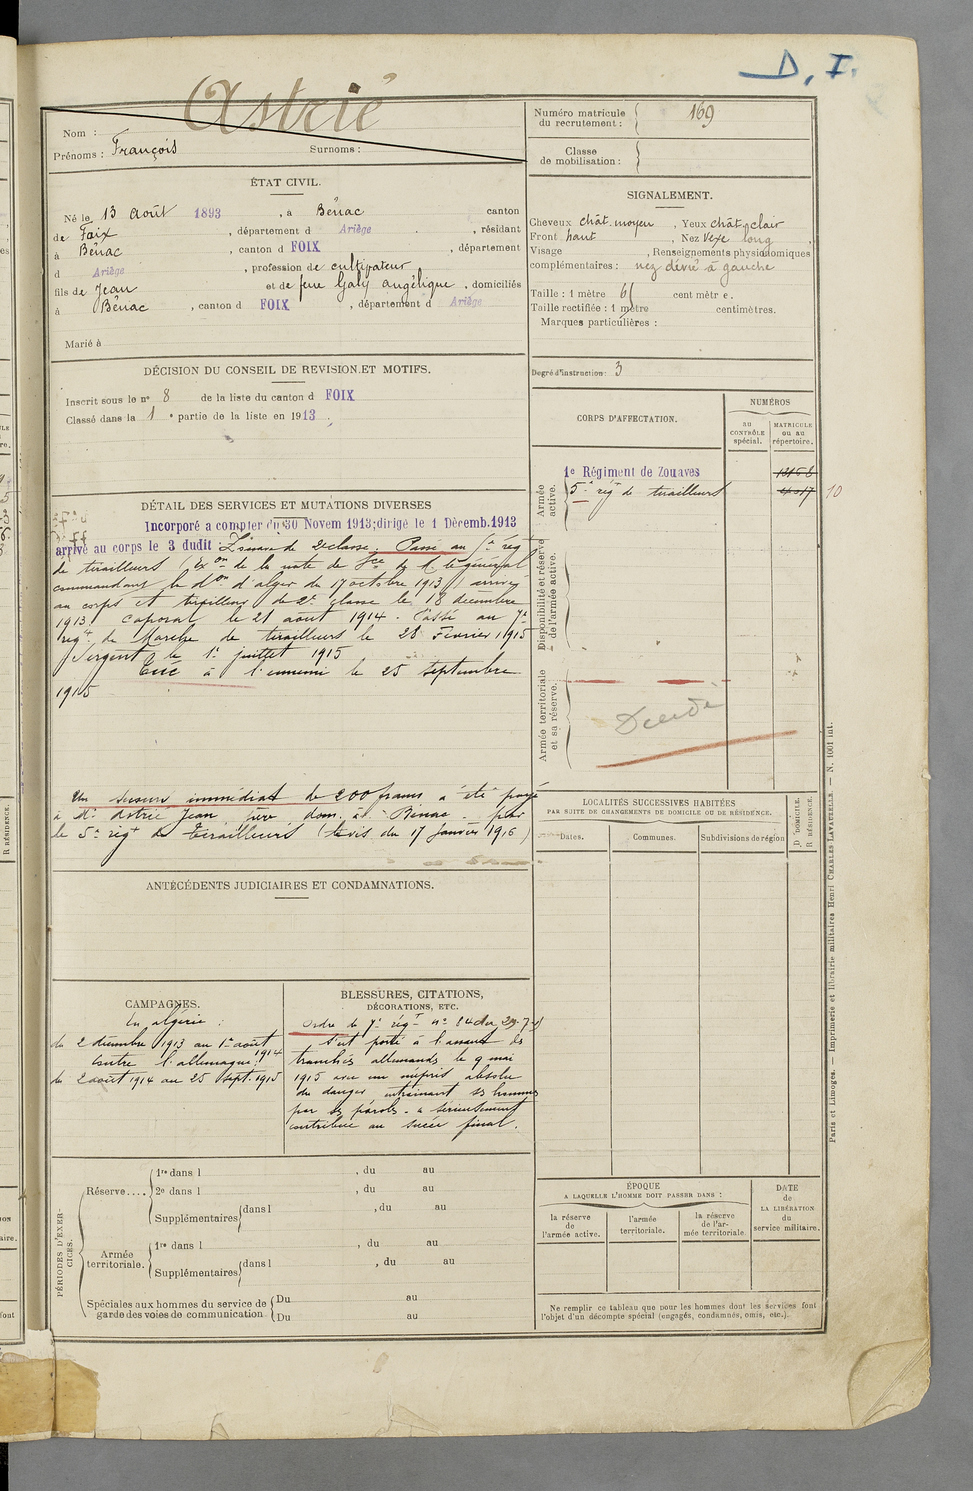 D. I.
Astrié
Nom :
Prénoms : François Surnoms :
Numéro matricule du recrutement : 169
Classe de mobilisation :
ÉTAT CIVIL.
Né le 13 Août 1893, à Bénac canton
de Foix, département d Ariège, résidant
à Bénac, canton d FOIX, département
d Ariège, profession de cultivateur
fils de Jean et de feue Galy Angélique, domiciliés
à Bénac, canton d FOIX, département d Ariège
Marié à
SIGNALEMENT.
Cheveux chât. moyen, Yeux chât. clair
Front haut, Nez vexe long
Visage, Renseignements physionomiques
complémentaires : nez dévié à gauche
Taille : 1 mètre 61 centimètre.
Taille rectifiée : 1 mètre centimètres.
Marques particulières :
Degré d'instruction : 3
DÉCISION DU CONSEIL DE REVISION ET MOTIFS.
Inscrit sous le n° 8 de la liste du canton d FOIX
Classé dans la 1e partie de la liste en 1913
CORPS D'AFFECTATION.
NUMÉROS
au CONTRÔLE spécial.
MATRICULE ou au répertoire.
Armée active.
1e Régiment de Zouaves
5e rég de tirailleurs
10
Disponibilité et réserve de l'armée active.
Armée territoriale et sa réserve.
Décédé
DÉTAIL DES SERVICES ET MUTATIONS DIVERSES
Incorporé a compter du 30 Novem 1913; dirigé le 1 Décemb. 1913
arrivé au corps le 3 dudit Zouave de 2e classe. Passé au 5e rég
de tirailleurs (Ex on de la note de Sce de M. le général
commandant la don d'alger du 17 octobre 1913) arrivé
au corps et tirailleur de 2e classe le 18 décembre
1913 Caporal le 21 août 1914. Passé au 7e
régt de Marche de tirailleurs le 28 Février 1915
Sergent le 1er juillet 1915
Tué à l'ennemi le 25 septembre
1915
Un secours immédiat de 200 francs a été payé
à Mr Astrié Jean, père, dom. à Bénac par
le 5e régt de Tirailleurs (avis du 17 janvier 1916)
LOCALITÉS SUCCESSIVES HABITÉES
PAR SUITE DE CHANGEMENTS DE DOMICILE OU DE RÉSIDENCE.
Dates. Communes. Subdivisions de région
D DOMICILE.
R RÉSIDENCE.
ANTÉCÉDENTS JUDICIAIRES ET CONDAMNATIONS.
CAMPAGNES.
En algérie :
du 2 décembre 1913 au 1er août
1914
Contre l'allemagne
du 2 août 1914 au 25 Sept. 1915
BLESSURES, CITATIONS,
DÉCORATIONS, ETC.
Ordre de 7e régt n° 84 du 29-7-15
S'est porté à l'assaut des
tranchées allemandes le 9 mai
1915 avec un mépris absolu
du danger entraînant ses hommes
par ses paroles. a sérieusement
contribué au succès final.
PÉRIODES D'EXERCICES.
Réserve....
1re dans l , du au
2e dans l , du au
Supplémentaires dans l , du au
Armée territoriale.
1re dans l , du au
Supplémentaires dans l , du au
Spéciales aux hommes du service de garde des voies de communication
Du au
Du au
ÉPOQUE
A LAQUELLE L'HOMME DOIT PASSER DANS :
la réserve de l'armée active.
l'armée territoriale.
la réserve de l'armée territoriale.
DATE de LA LIBÉRATION du service militaire.
Ne remplir ce tableau que pour les hommes dont les services font
l'objet d'un décompte spécial (engagés, condamnés, omis, etc.).
Paris et Limoges. — Imprimerie et librairie militaires Henri CHARLES-LAVAUZELLE. — N. 1001 int.